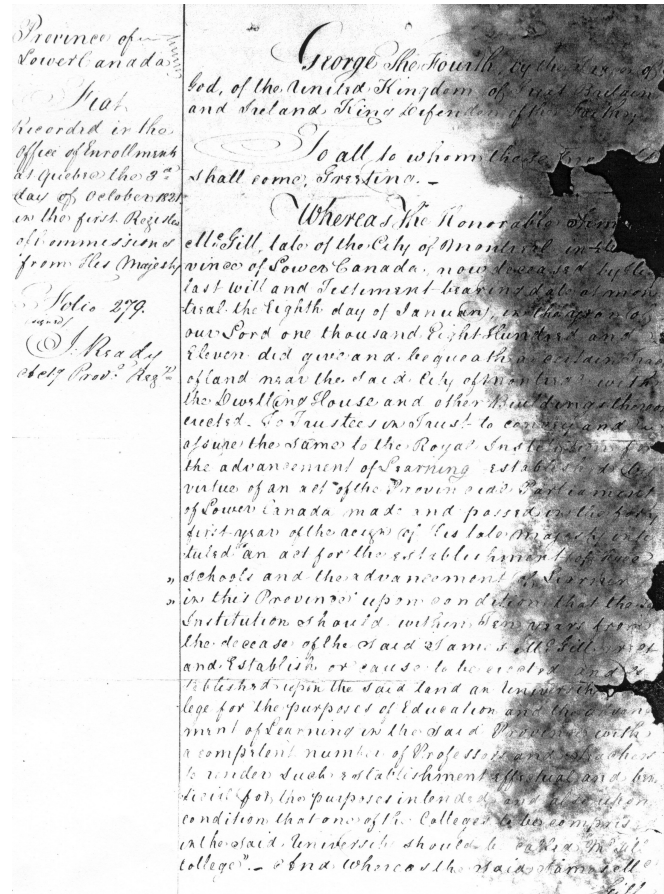 Province of
Lower Canada
Fiat
Recorded in the
Office of Enrollments
at Quebec the 3rd
day of October 1821
in the first Register
of Commissions
from His Majesty
Folio 279.
signed
J. Ready
Actg Provl. Regr.
George The Fourth, by the of
God, of the United Kingdom of Great Britain
and Ireland King Defender of the Faith
To all to whom these
shall come, Greeting. -
Whereas The Honorable
McGill, late of the City of Montreal in the
vince of Lower Canada, now deceased, by his
last will and Testament bearing date at Mon
treal the Eighth day of January, in the year of
our Lord one thousand Eight Hundred and
Eleven did give and bequeath a certain
of land near the said City of Montreal with
the Dwelling House and other Buildings thereon
erected. To Trustees in Trust to convey and
assure the same to the Royal Institution for
the advancement of Learning establish
virtue of an act of the Provincial Parliament
of Lower Canada made and passed in the
first year of the reign of His late Majesty
tuled "an act for the establishment of
" Schools and the advancement of
" in this Province" upon condition that the
Institution should within ten years from
the decease of the said James McGill
and Establish or cause to be erected
tablished upon the said land an
lege for the purposes of Education and the
ment of Learning in the said Province with
a competent number of Professors and
to render such establishment effectual and
ficial for the purposes intended, and also upon
condition that one of the Colleges to be comprised
in the said University should be called "McGill
College". - And whereas the said James